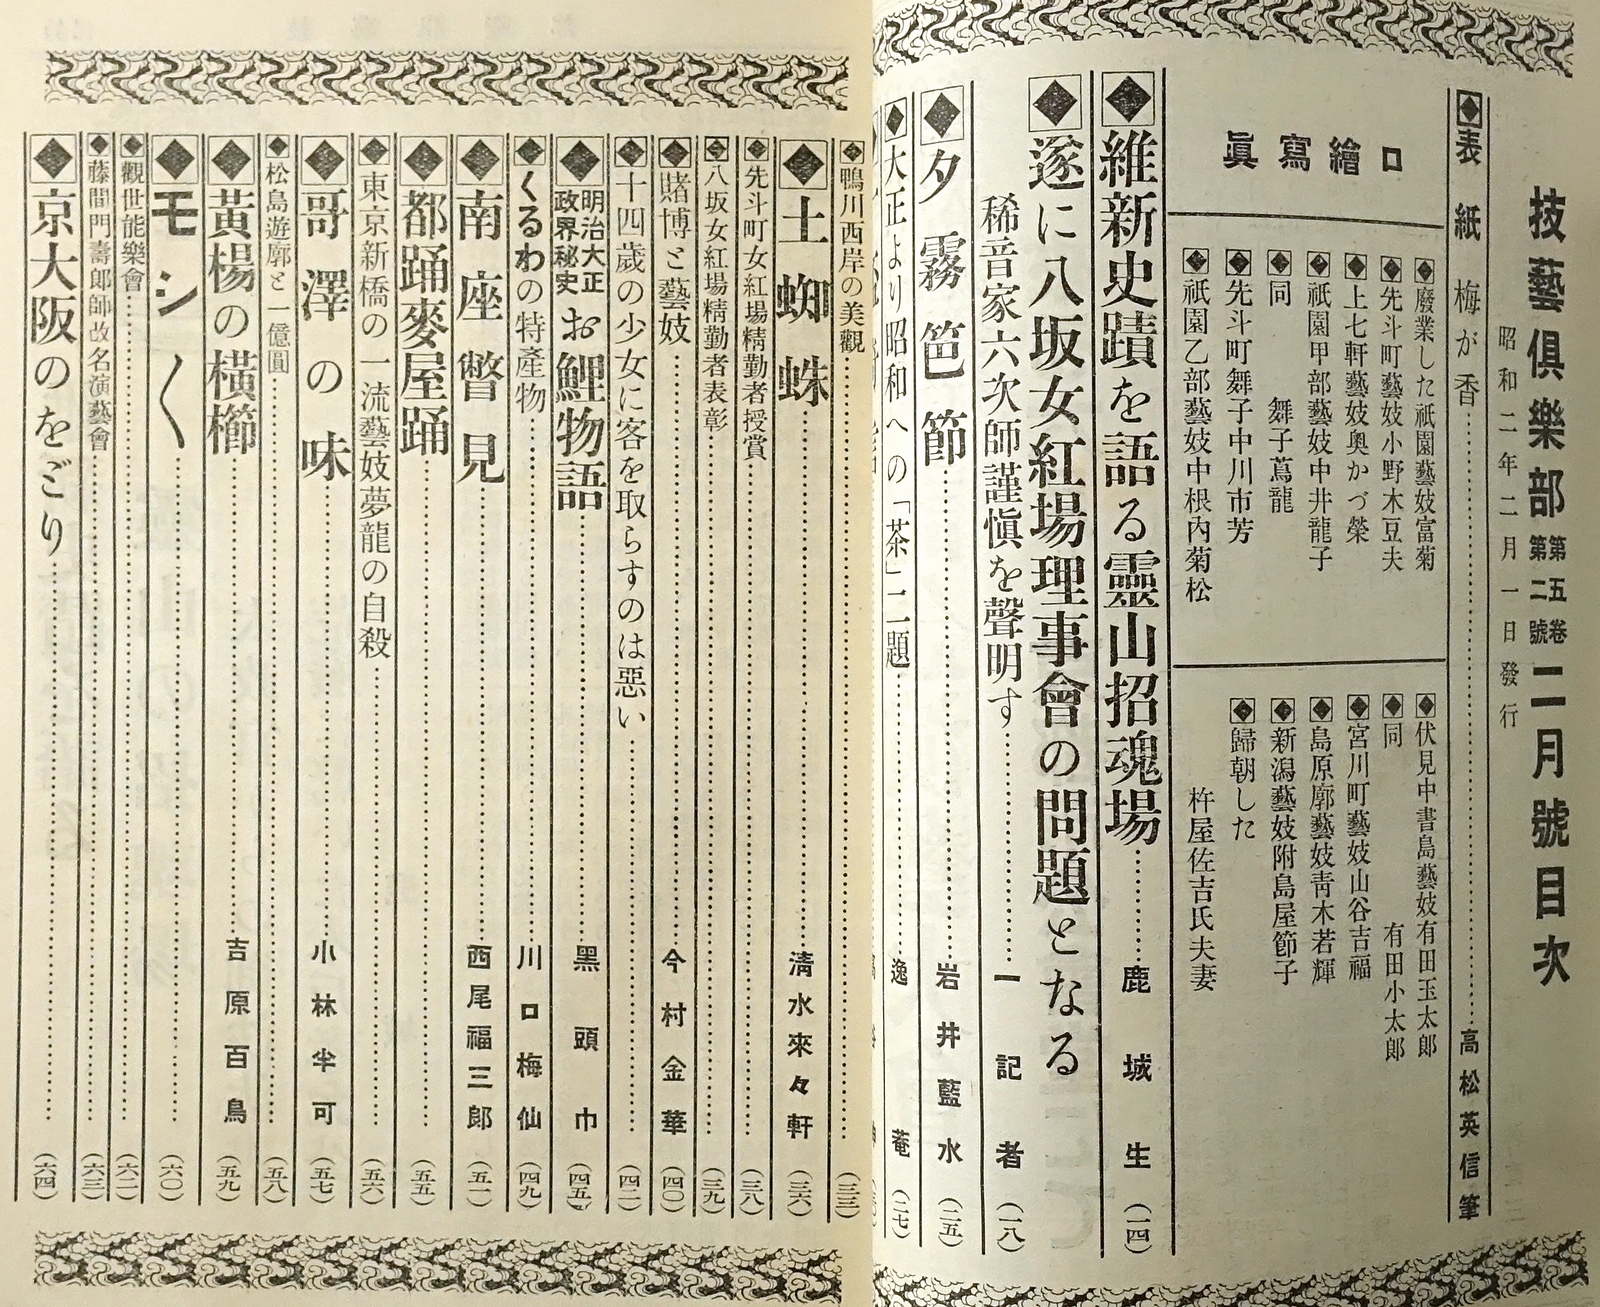 技藝倶樂部 第五卷 第二號 二月號目次
昭和二年二月一日發行
表紙 梅が香 高松英信筆
口繪寫眞
廢業した祇園藝妓富菊
先斗町藝妓小野木豆夫
上七軒藝妓奥かづ榮
祇園甲部藝妓中井龍子
同 舞子蔦龍
先斗町舞子中川市芳
祇園乙部藝妓中根内菊松
伏見中書島藝妓有田玉太郎
同 有田小太郎
宮川町藝妓山谷吉福
島原廓藝妓靑木若輝
新潟藝妓附島屋節子
歸朝した
杵屋佐吉氏夫妻
維新史蹟を語る靈山招魂場 鹿城生 (一四)
遂に八坂女紅場理事會の問題となる
稀音家六次師謹愼を聲明す 一記者 (一八)
夕霧笆節 岩井藍水 (二五)
大正より昭和への「茶」二題 逸菴 (二七)
鴨川西岸の美觀 (三三)
土蜘蛛 淸水來々軒 (三六)
先斗町女紅場精勤者授賞 (三八)
八坂女紅場精勤者表彰 (三九)
賭博と藝妓 今村金華 (四〇)
十四歲の少女に客を取らすのは惡い (四二)
明治大正政界秘史 お鯉物語 黑頭巾 (四五)
くるわの特產物 川口梅仙 (四九)
南座瞥見 西尾福三郎 (五一)
都踊麥屋踊 (五五)
東京新橋の一流藝妓夢龍の自殺 (五六)
哥澤の味 小林半可 (五七)
松島遊廓と一億圓 (五八)
黃楊の橫櫛 吉原百鳥 (五九)
モシ〱 (六〇)
觀世能樂會 (六二)
藤間門壽郞師改名演藝會 (六三)
京大阪のをごり (六四)